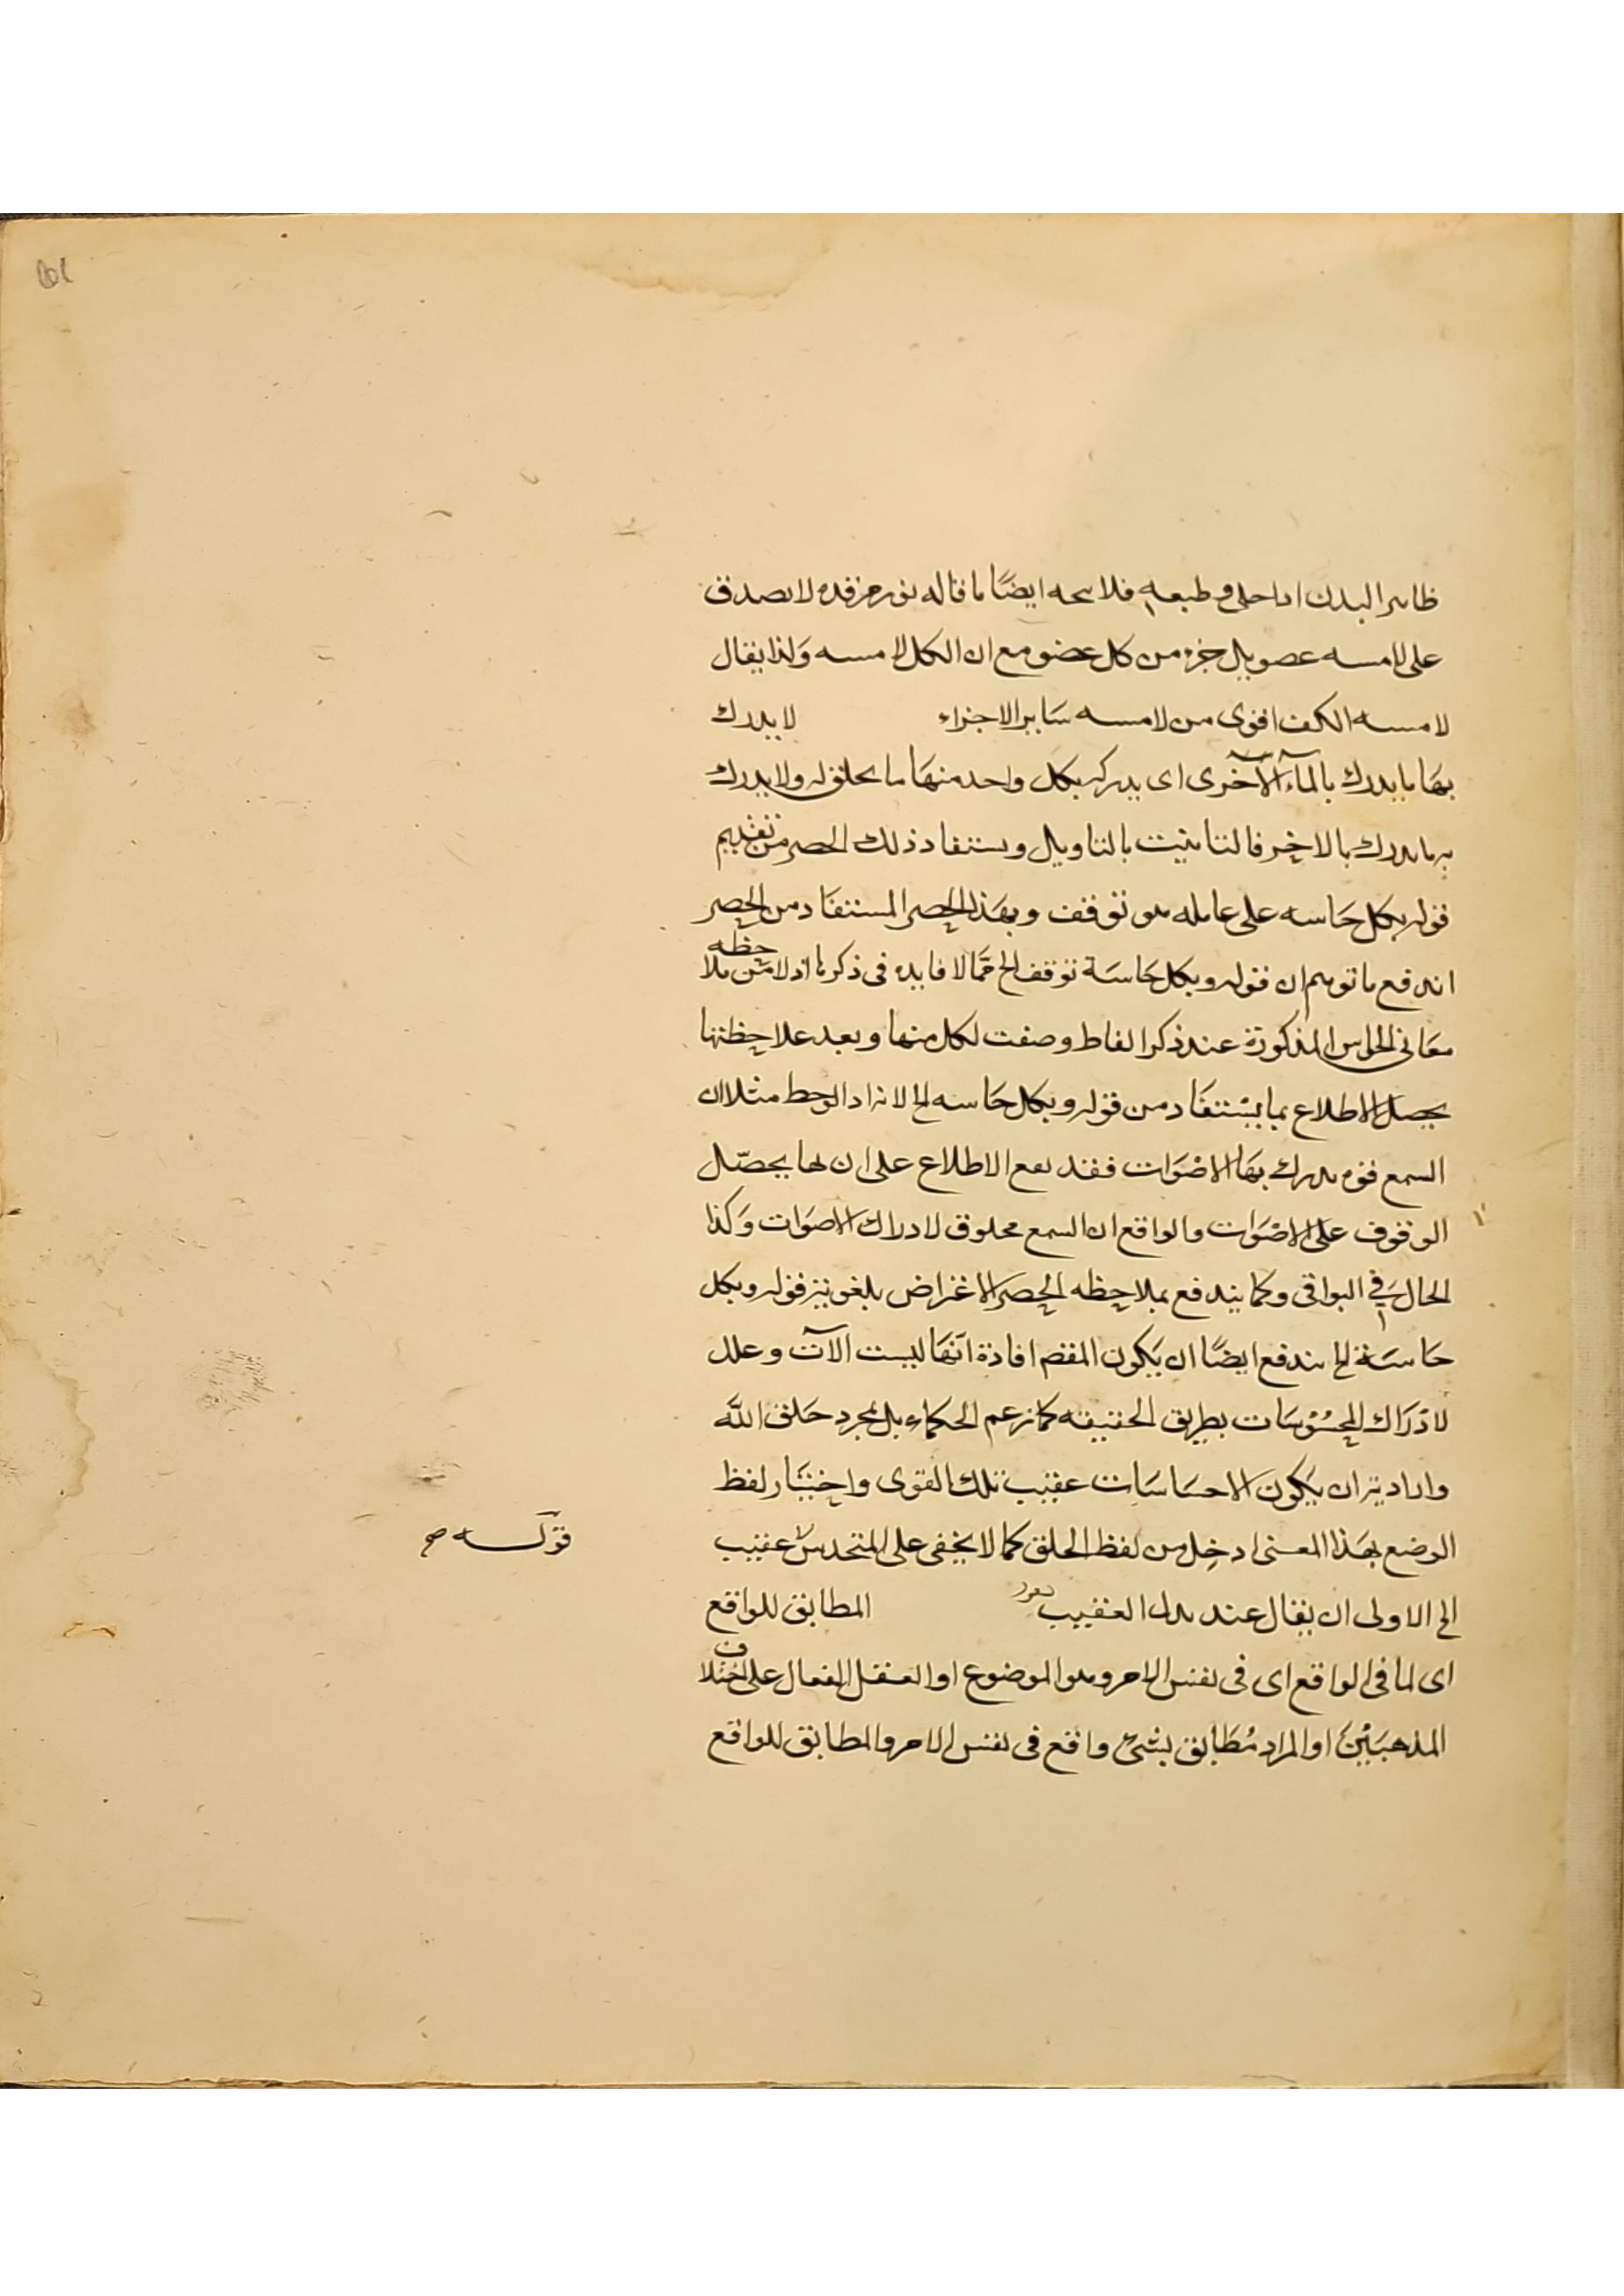 ظاهر البدن داخل وطبعه فلا يتجه ايضًا ما قاله نور مرقده لا يصدق
على لامسه عضو بل جزء من كل عضو مع ان الكل لامسه وَلذا يقال
لامسه الكف اقوى من لامسه سَاير الاجزاء لا يدرك
بهَا ما يدرك بالحاسة الاخرى اى يدرك بكل واحد منهَا ما يخلق له ولا يدرك
به ما يدرك بالاخر فالتانيث بالتاويل ويستفاد ذلك الحصر من تقديم
قوله بكل حَاسه على عامله هو توقف وبهَذا الحصر المستفَاد من الحصر
اندفع ما توهم ان قوله وبكل حَاسَة توقف الخ ممّا لا فايده فى ذكرها اذ لا من ملاحظه
معَانى الحواس المذكورَة عند ذكر الفاظ وصفت لكل منها وبعد ملاحظتها
يحصل الاطلاع بما يستفَاد من قوله وبكل حَاسه الخ لانه اذا لوحظ مثلا ان
السمع قوه يدرك بهَا الاصْوَات فقد يقع الاطلاع على ان بها يحصّل
الوقوف على الاصْوَات والواقع ان السمع مخلوق لادراك الاصوَات وَكذا
الحال فى البواقى وكما يندفع بملاحظه الحصر الاعتراض بلغويّة قوله وبكل
حَاسَة الخ يندفع ايضًا ان يَكون المقصم افادَة انّهَا ليست الآت وعلل
لادْرَاك المحسُوْسَات بطريق الحقيقه كما زعم الحكماء بل بمجرد خَلق اللّه
وارادته ان يَكون الاحسَاسَات عقيب تلك القوى واختيَار لفظ
الوضع بهَذا المعنى ادخل من لفظ الخلق كما لا يخفى على المتحدس عقيب
قوّلسه ص
الخ الاولى ان يقال عند بدل العقيب المطابق للواقع
اى لما فى الواقع اى فى نفس الامر وهو الموضوع او العقل الفعال على اختلاف
المذهبَيْنَ او المراد مُطَابق بشئ واقع فى نفس الامر والمطابق للواقع